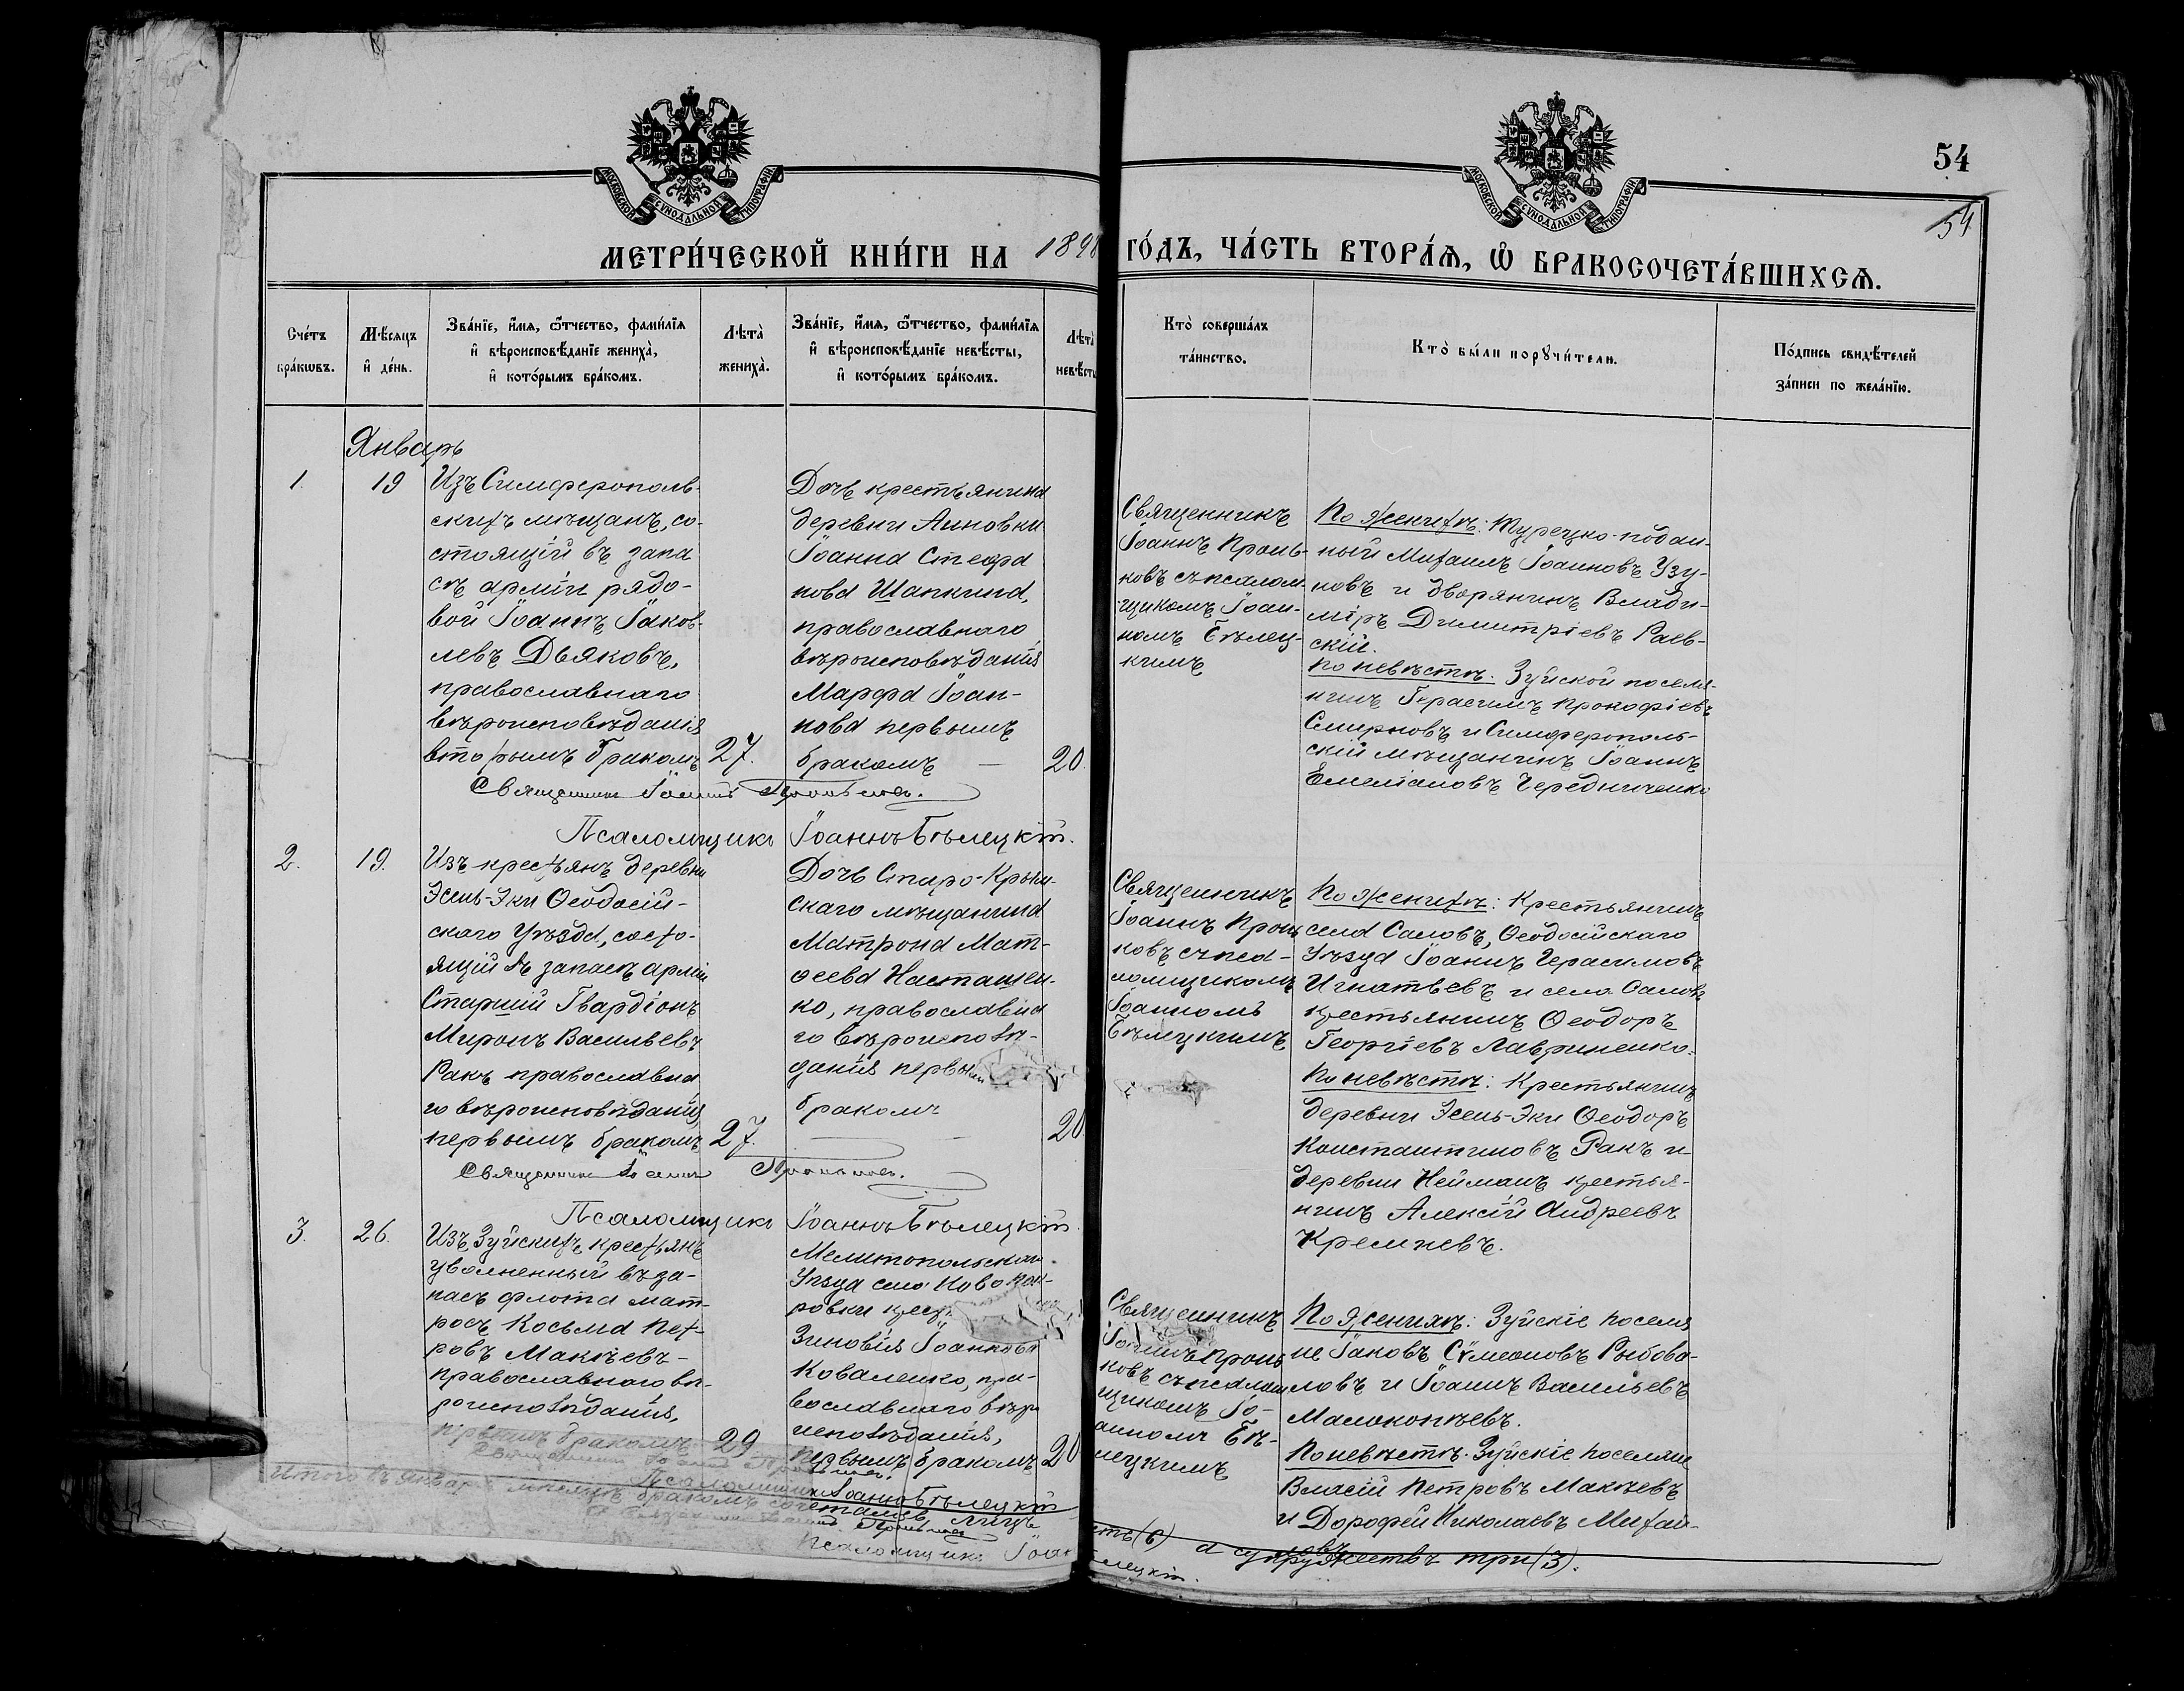 МОСКОВСКОЙ СѴНОДАЛЬНОЙ ТИПОГРАФІИ
МОСКОВСКОЙ СѴНОДАЛЬНОЙ ТИПОГРАФІИ
54
54
МЕТРИ́ЧЕСКОЙ КНИ́ГИ НА 1898 ГО́ДЪ, ЧА́СТЬ ВТОРА́Я, Ѡ҆ БРАКОСОЧЕТА́ВШИХСѦ.
Сче́тъ
бра́кѡвъ.
Мѣ́сяцъ
и҆ де́нь.
Зва́нїе, и҆́мѧ, ѻ҆́тчество, фами́лїѧ
и҆ вѣроисповѣ́данїе жениха̀,
и҆ кото́рымъ бра́комъ.
Лѣ́та̀
жениха̀.
Зва́нїе, и҆́мѧ, ѻ҆́тчество, фами́лїѧ
и҆ вѣроисповѣ́данїе невѣ́сты,
и҆ кото́рымъ бра́комъ.
Лѣ́та̀
невѣ́сты
Кто̀ соверша́лъ
та́инство.
Кто̀ бы́ли порꙋчи́тели.
По́дпись свидѣ́телей
за́писи по жела́нїю.
Январь
1.
19
Изъ Симферополь-
скихъ мѣщанъ, со-
стоящій въ запа
сѣ арміи рядо-
вой Іоаннъ Іаков-
левъ Дьяковъ,
православнаго
вѣроисповѣданія
вторымъ бракомъ
27.
Дочь крестьянина
деревни Анновки
Іоанна Стефа
нова Шапкина,
православнаго
вѣроисповѣданія
Марфа Іоан-
нова первымъ
бракомъ —
20.
Священникъ
Іоаннъ Пронь-
ковъ съ псалом-
щикомъ Іоан-
номъ Бѣлец-
кимъ
По женихѣ: Турецко-поддан-
ный Михаилъ Іоанновъ Узу-
новъ и дворянинъ Влади-
міръ Димитріевъ Раев-
скій.
По невѣстѣ: Зуйской поселя-
нинъ Герасимъ Прокофіевъ
Смирновъ и Симферополь-
скій мѣщанинъ Іоаннъ
Емеліановъ Чередниченко
Священникъ Іоаннъ Проньковъ.
Псаломщикъ Іоаннъ Бѣлецкій.
2.
19.
Изъ крестьянъ деревни
Эсень-Эки Ѳеодосій-
скаго Уѣзда, состо-
ящій въ запасѣ арміи
Старшій Гвардіонъ
Миронъ Васильевъ
Ракъ православна
го вѣроисповѣданія
первымъ бракомъ
27.
Дочь Старо-Крым-
скаго мѣщанина
Матрона Мат-
ѳеева Насташен-
ко, православна
го вѣроисповѣ-
данія первым
бракомъ
20.
Священникъ
Іоаннъ Прон
ковъ съ пса-
ломщикомъ
Іоанномъ
Бѣлецкимъ
По женихѣ: Крестьянинъ
села Саловъ, Ѳеодосійскаго
Уѣзда Іоаннъ Герасимовъ
Игнатьевъ и села Саловъ
крестьянинъ Ѳеодоръ
Георгіевъ Лавриненко.
По невѣстѣ: Крестьянинъ
деревни Эсень-Эки Ѳеодоръ
Константиновъ Ракъ и
деревни Нейманъ крестья-
нинъ Алексій Андреевъ
Кремневъ.
Священникъ Іоаннъ Проньковъ.
Псаломщикъ Іоаннъ Бѣлецкій.
3.
26.
Изъ Зуйскихъ крестьянъ
уволненный въ за-
пасъ флота мат-
росъ Косьма Пет-
ровъ Макѣевъ-
православнаго вѣ-
роисповѣданія,
первымъ бракомъ
29
Мелитопольскаго
Уѣзда села Ново
ровки крест
Зиновія Іоаннова
Коваленко, пра-
вославнаго вѣро
исповѣданія,
первымъ бракомъ
20
Священникъ
Іоаннъ Пронь
ковъ съ псалом
щикомъ Іо-
анномъ Бѣ-
лецкимъ
По женихѣ: Зуйскіе поселя
не Іаковъ Сѵмеоновъ Рыбова-
ловъ и Іоаннъ Васильевъ
Малокопѣевъ.
По невѣстѣ: Зуйскіе поселяне
Власій Петровъ Макѣевъ
и Дорофей Николаевъ Михай-
ловъ
Священникъ Іоаннъ Проньковъ.
Псаломщикъ Іоаннъ Бѣлецкій
Итого въ Январѣ мѣсяцѣ бракомъ сочеталось лицъ
сть (6) а супружествъ три (3).
Священникъ Іоаннъ Проньковъ
Псаломщикъ Іоан
елецкій.